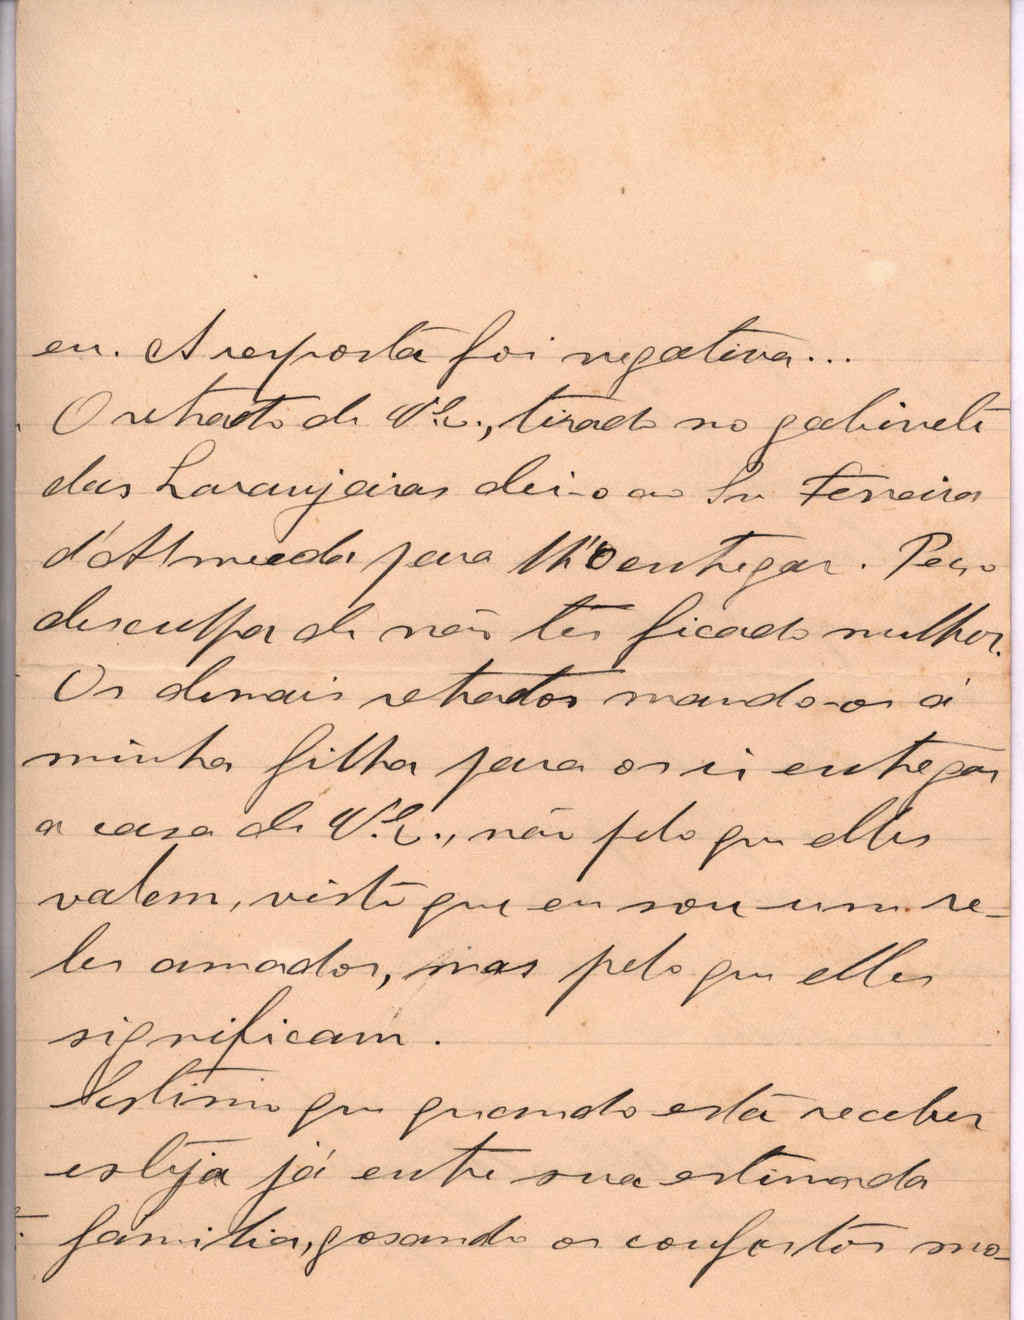 eu. A resposta foi negativa...
O retrato de V.E., tirado no gabinete
das Laranjeiras dei-o ao Sr Ferreira
d'Almeida para lh'o entregar. Peço
desculpa de não ter ficado melhor.
Os demais retratos mando-os á
minha filha para os ir entregar
a casa de V.E., não pelo que elles
valem, visto que eu sou um re-
les amador, mas pelo que elles
significam.
Estimo que quando esta receber
esteja já entre sua estimada
familia, gosando os confortos mo-